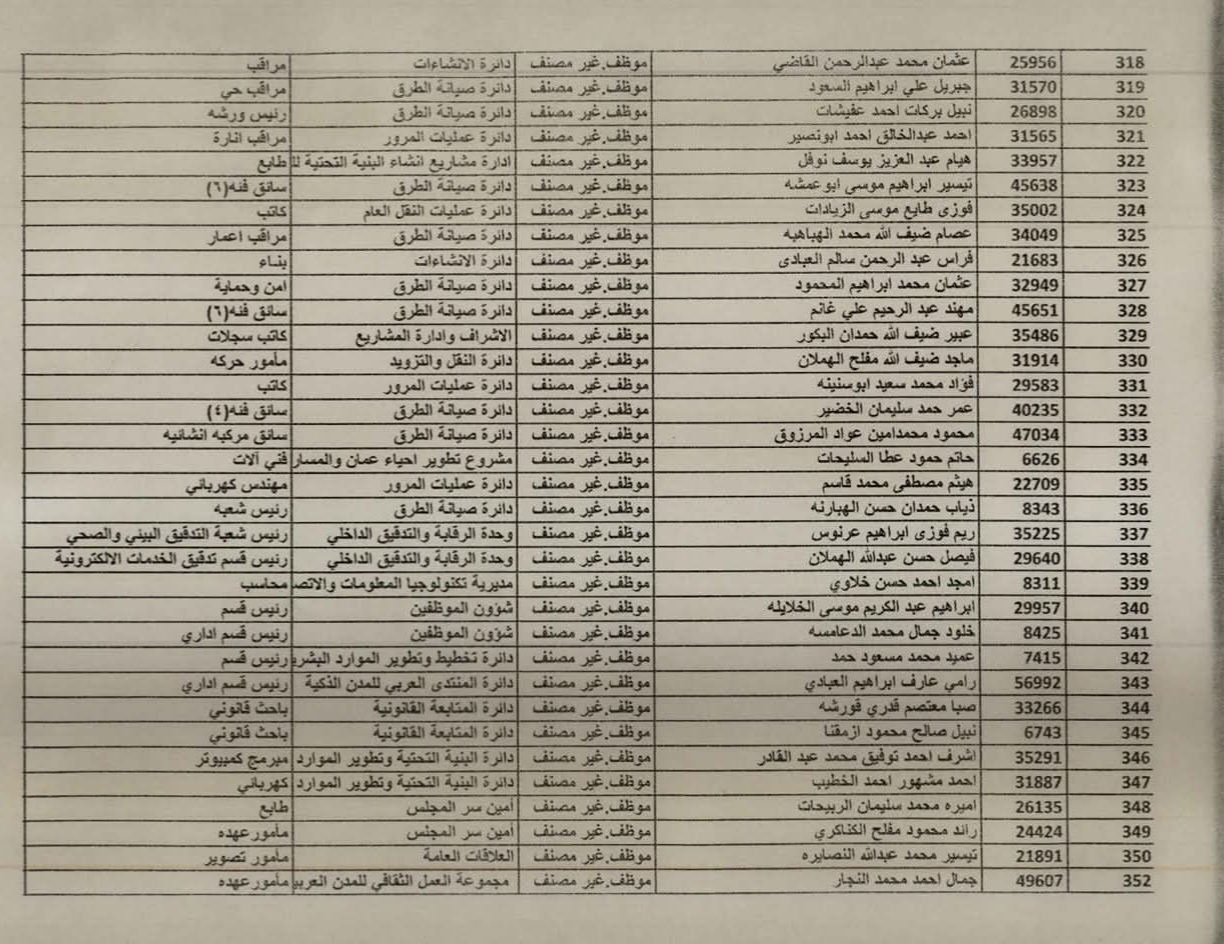 318 25956 عثمان محمد عبدالرحمن القاضي موظف.غير مصنف دائرة الانشاءات مراقب
319 31570 جبريل علي ابراهيم السعود موظف.غير مصنف دائرة صيانة الطرق مراقب حي
320 26898 نبيل بركات احمد عفيشات موظف.غير مصنف دائرة صيانة الطرق رئيس ورشه
321 31565 احمد عبدالخالق احمد ابونصير موظف.غير مصنف دائرة عمليات المرور مراقب انارة
322 33957 هيام عبد العزيز يوسف نوفل موظف.غير مصنف ادارة مشاريع انشاء البنية التحتية لل طابع
323 45638 تيسير ابراهيم موسى ابو عمشه موظف.غير مصنف دائرة صيانة الطرق سائق فئه(٦)
324 35002 فوزي طايع موسى الزيادات موظف.غير مصنف دائرة عمليات النقل العام كاتب
325 34049 عصام ضيف الله محمد الهباهبه موظف.غير مصنف دائرة صيانة الطرق مراقب اعمار
326 21683 فراس عبد الرحمن سالم العبادى موظف.غير مصنف دائرة الانشاءات بناء
327 32949 عثمان محمد ابراهيم المحمود موظف.غير مصنف دائرة صيانة الطرق امن وحماية
328 45651 مهند عبد الرحيم علي غانم موظف.غير مصنف دائرة صيانة الطرق سائق فئه(٦)
329 35486 عبير ضيف الله حمدان البكور موظف.غير مصنف الاشراف وادارة المشاريع كاتب سجلات
330 31914 ماجد ضيف الله مفلح الهملان موظف.غير مصنف دائرة النقل والتزويد مأمور حركه
331 29583 فؤاد محمد سعيد ابوسنينه موظف.غير مصنف دائرة عمليات المرور كاتب
332 40235 عمر حمد سليمان الخضير موظف.غير مصنف دائرة صيانة الطرق سائق فئه(٤)
333 47034 محمود محمدامين عواد المرزوق موظف.غير مصنف دائرة صيانة الطرق سائق مركبه انشائيه
334 6626 حاتم حمود عطا السليحات موظف.غير مصنف مشروع تطوير احياء عمان والمسار فني آلات
335 22709 هيثم مصطفى محمد قاسم موظف.غير مصنف دائرة عمليات المرور مهندس كهربائي
336 8343 ذياب حمدان حسن الهبارنه موظف.غير مصنف دائرة صيانة الطرق رئيس شعبه
337 35225 ريم فوزى ابراهيم عرنوس موظف.غير مصنف وحدة الرقابة والتدقيق الداخلي رئيس شعبة التدقيق البيئي والصحي
338 29640 فيصل حسن عبدالله الهملان موظف.غير مصنف وحدة الرقابة والتدقيق الداخلي رئيس قسم تدقيق الخدمات الالكترونية
339 8311 امجد احمد حسن خلاوي موظف.غير مصنف مديرية تكنولوجيا المعلومات والاتص محاسب
340 29957 ابراهيم عبد الكريم موسى الخلايله موظف.غير مصنف شؤون الموظفين رئيس قسم
341 8425 خلود جمال محمد الدعامسه موظف.غير مصنف شؤون الموظفين رئيس قسم اداري
342 7415 عميد محمد مسعود حمد موظف.غير مصنف دائرة تخطيط وتطوير الموارد البشري رئيس قسم
343 56992 رامي عارف ابراهيم العبادي موظف.غير مصنف دائرة المنتدى العربي للمدن الذكية رئيس قسم اداري
344 33266 صبا معتصم قدري قورشه موظف.غير مصنف دائرة المتابعة القانونية باحث قانوني
345 6743 نبيل صالح محمود ازمقنا موظف.غير مصنف دائرة المتابعة القانونية باحث قانوني
346 35291 اشرف احمد توفيق محمد عبد القادر موظف.غير مصنف دائرة البنية التحتية وتطوير الموارد مبرمج كمبيوتر
347 31887 احمد مشهور احمد الخطيب موظف.غير مصنف دائرة البنية التحتية وتطوير الموارد كهربائي
348 26135 اميره محمد سليمان الربيحات موظف.غير مصنف أمين سر المجلس طابع
349 24424 رائد محمود مفلح الكناكري موظف.غير مصنف أمين سر المجلس مأمور عهده
350 21891 تيسير محمد عبدالله النصايره موظف.غير مصنف العلاقات العامة مأمور تصوير
352 49607 جمال احمد محمد النجار موظف.غير مصنف مجموعة العمل الثقافي للمدن العربي مأمور عهده